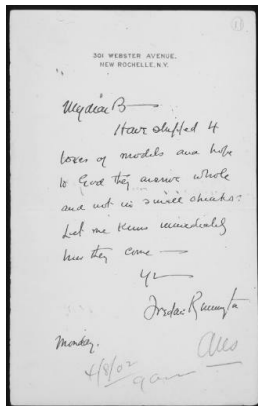 301 WEBSTER AVENUE,
NEW ROCHELLE, N.Y.
My dear B—
Have shipped 4
boxes of models and hope
to God they arrive whole
and not in small chunks.
Let me know immediately
how they come —
Yr—
Frederic Remington
Monday.
4/8/02
Ans